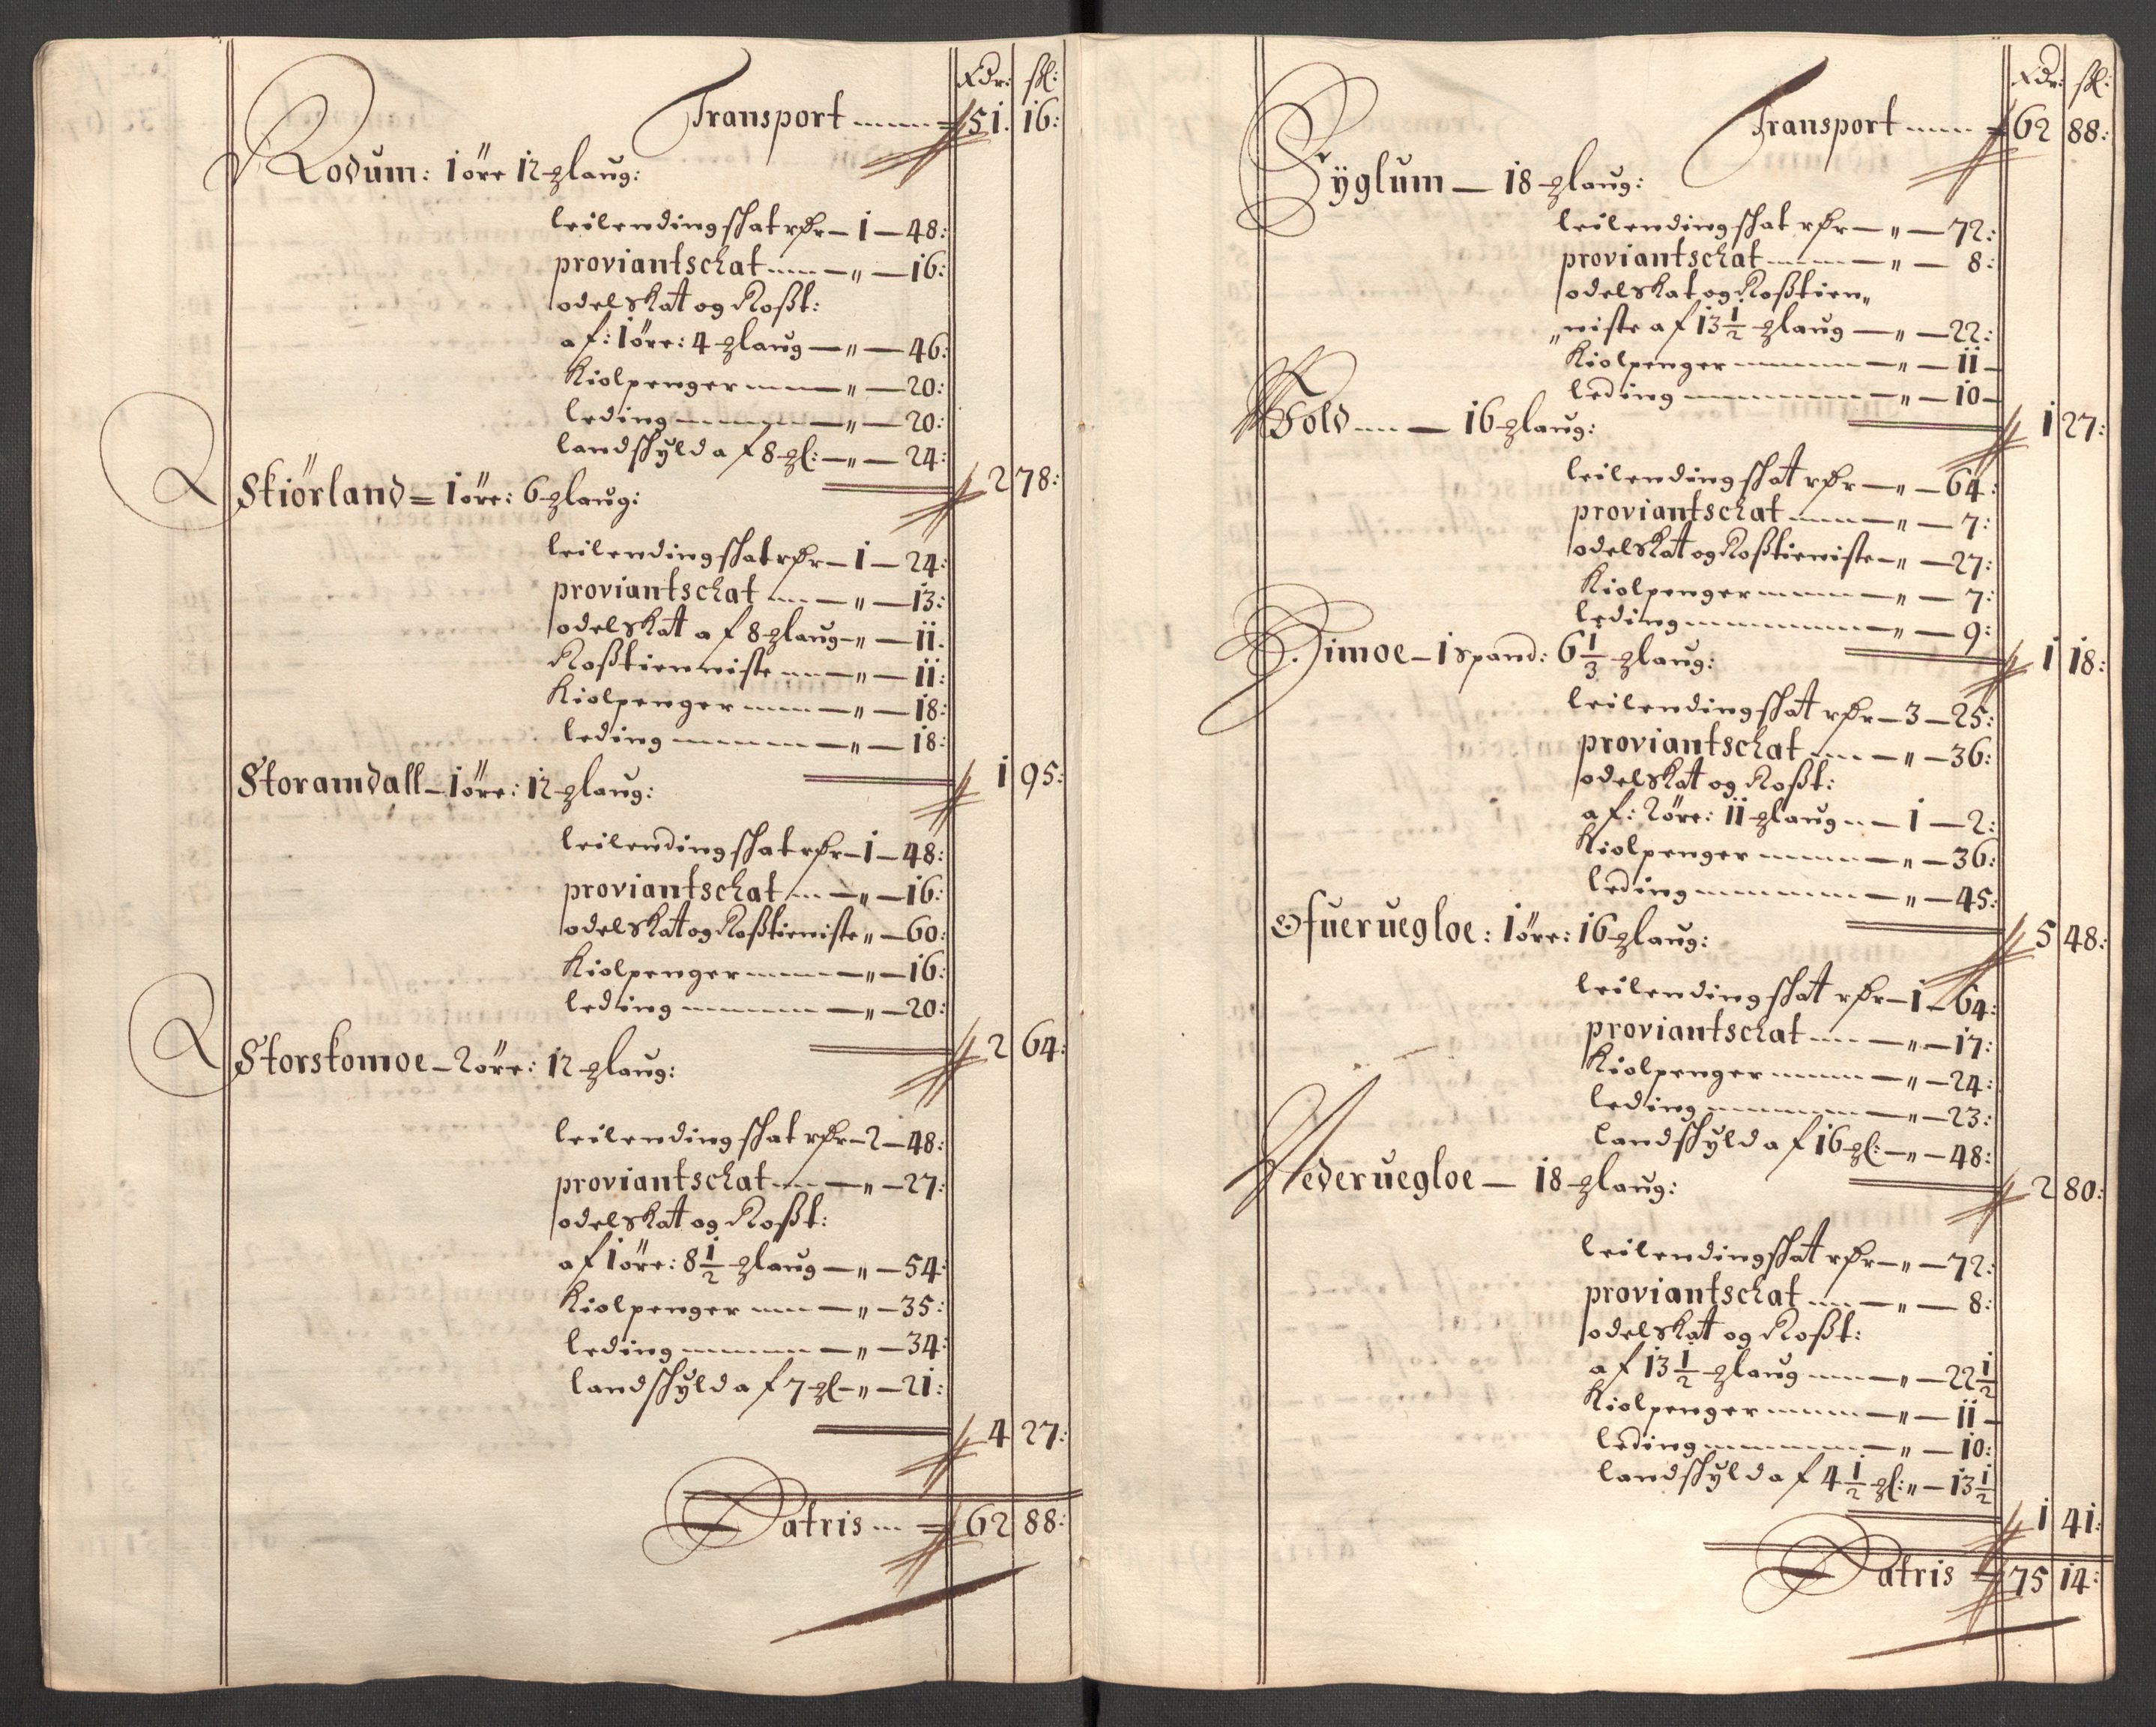 Rdr: sk:
Transport ------ 51. 16:
Rodum: 1öre 12 plaug:
leilendingschat rdr – 1 – 48:
proviantschat ---- – „ – 16:
odelskat og Roßt:
af: 1öre: 4 plaug – „ – 46:
Kiolpenger ---- – „ – 20:
leding ------ – „ – 20:
landschyld af 8 pl: – „ – 24:
2 78:
Skiörland = 1öre: 6 plaug:
leilendingschat rdr – 1 – 24:
proviantschat ---- – „ – 13:
odelskat af 8 plaug – „ – 11.
Roßtienniste --- – „ – 11:
Kiolpenger ---- – „ – 18:
leding ------ – „ – 18:
1 95:
Storamdall – 1öre: 12 plaug:
leilendingschat rdr – 1 – 48:
proviantschat --- – „ – 16:
odelskat og Roßtieniste „ – 60:
Kiolpenger ---- – „ – 16:
leding ------ – „ – 20:
2 64:
Storskomoe – 2öre: 12 plaug:
leilendingschat rdr – 2 – 48:
proviantschat ---- – „ – 27:
odelskat og Roßt:
af 1öre: 8 1/2 plaug – „ – 54:
Kiolpenger --- – „ – 35:
leding ------ – „ – 34:
landschyld af 7 pl – „ – 21:
4 27:
Latris --- 62 88:
Rdr: sk:
Transport ----- 62 88:
Fyglum – 18 plaug:
leilendingschat rdr – „ – 72:
proviantschat ---- – „ – 8:
odelskat og Roßtien„
„niste af 13 1/2 plaug – „ – 22:
Kiolpenger ----- – „ – 11 –
leding ------ – „ – 10 –
1 27:
Vold ---- – 16 plaug:
leilendingschat rdr – „ – 64:
proviantschat ---- – „ – 7:
odelskat og Roßtieniste – „ – 27:
Kiolpenger ---- – „ – 7:
leding ------ – „ – 9:
1 18:
Dimoe – 1 spand: 6 1/3 plaug:
leilendingschat rdr – 3 – 25:
proviantschat ---- – „ – 36:
odelskat og Roßt:
af: 2öre: 11 plaug -- – 1 – 2:
Kiolpenger ---- – „ – 36:
leding ------ – „ – 45:
5 48:
Ofueruegloe: 1öre: 16 plaug:
leilendingschat rdr – 1 – 64:
proviantschat ---- – „ – 17:
Kiolpenger ---- – „ – 24:
leding ------ – „ – 23:
landschyld af 16 pl: – „ – 48:
2 80:
Nederuegloe – 18 plaug:
leilendingschat rdr – „ – 72:
proviantschat ---- – „ – 8:
odelskat og Roßt:
af 13 1/2 plaug ---- – „ – 22 1/2
Kiolpenger ---- – „ – 11 –
leding ------ – „ – 10:
landschyld af 4 1/2 pl: „ – 13 1/2
1 41:
Latris 75 14: